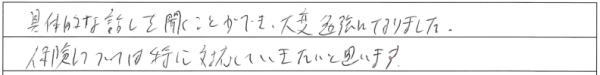 具体的な話しを聞くことができ、大変勉強になりました。
保険については特に対応していきたいと思います。